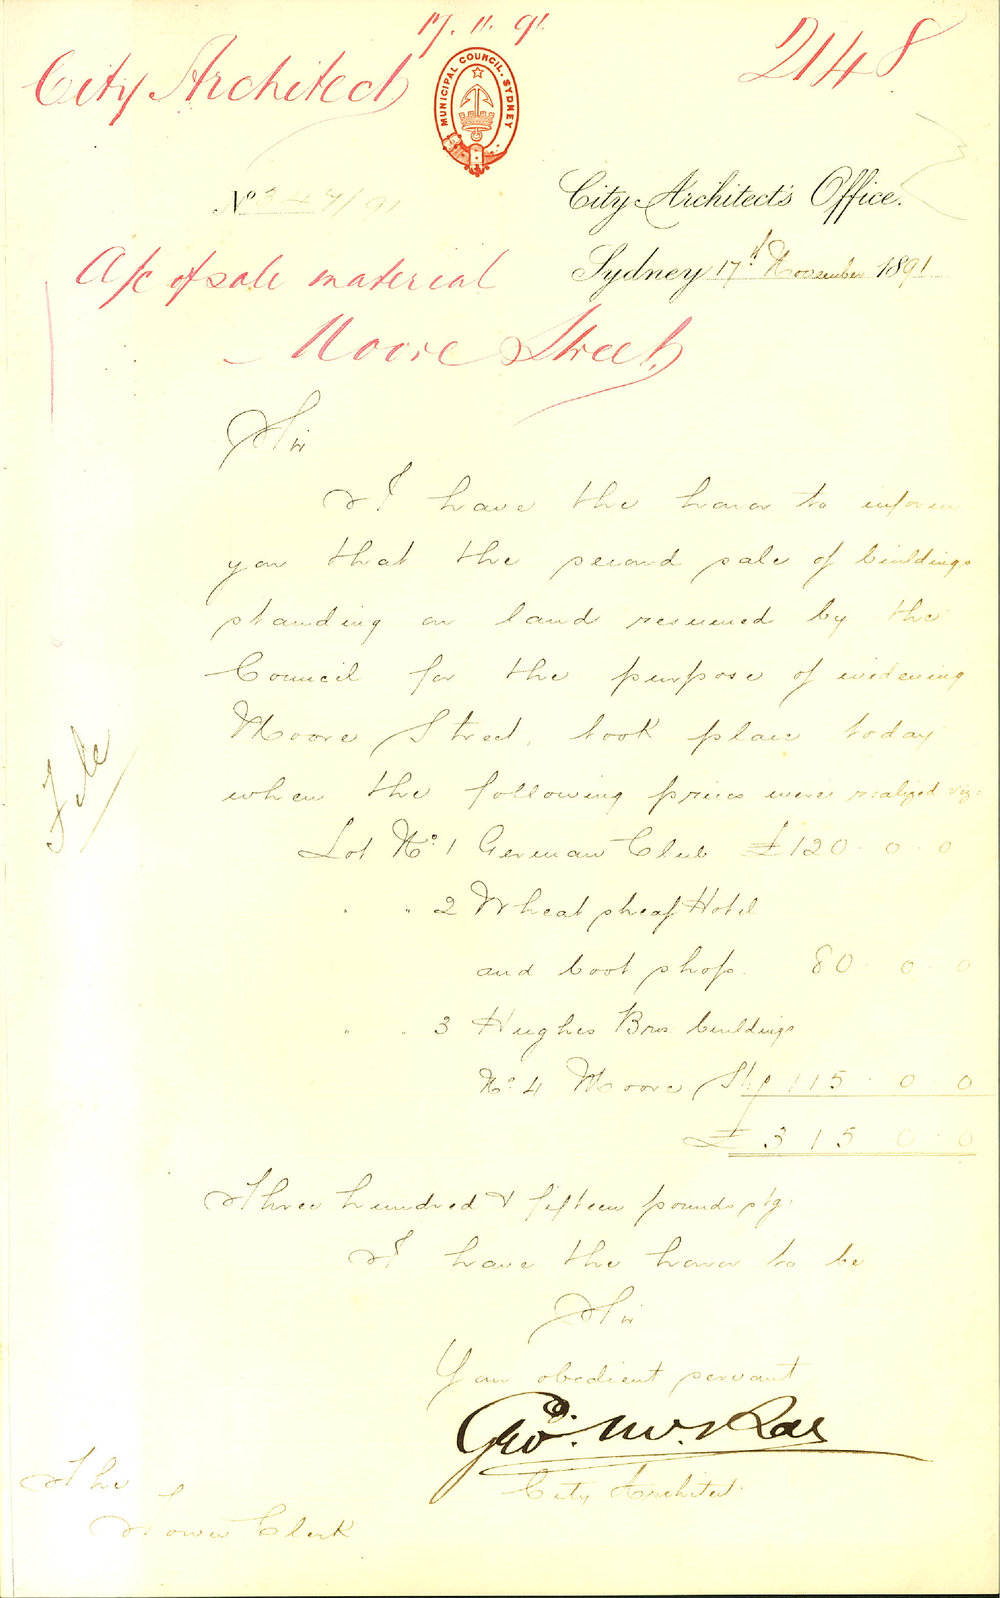 17. 11. 91
City Architect
2148
MUNICIPAL COUNCIL. SYDNEY
City Architect's Office.
No 347/91
Sydney 17th November 1891
A/c of sale material
Moore Street
Sir
I have the honor to inform
you that the second sale of buildings
standing on land resumed by the
Council for the purpose of widening
Moore Street, took place today
when the following prices were realized viz:
Lot No. 1 German Club £120. 0. 0
" " 2 Wheatsheaf Hotel
and boot shop. 80. 0. 0
" " 3 Hughes Bros buildings
No. 4 Moore St 115. 0 0
£315. 0. 0
Three hundred & fifteen pounds stg.
I have the honor to be
Sir
Your obedient servant
Geo. McRae
City Architect.
File
The
Town Clerk